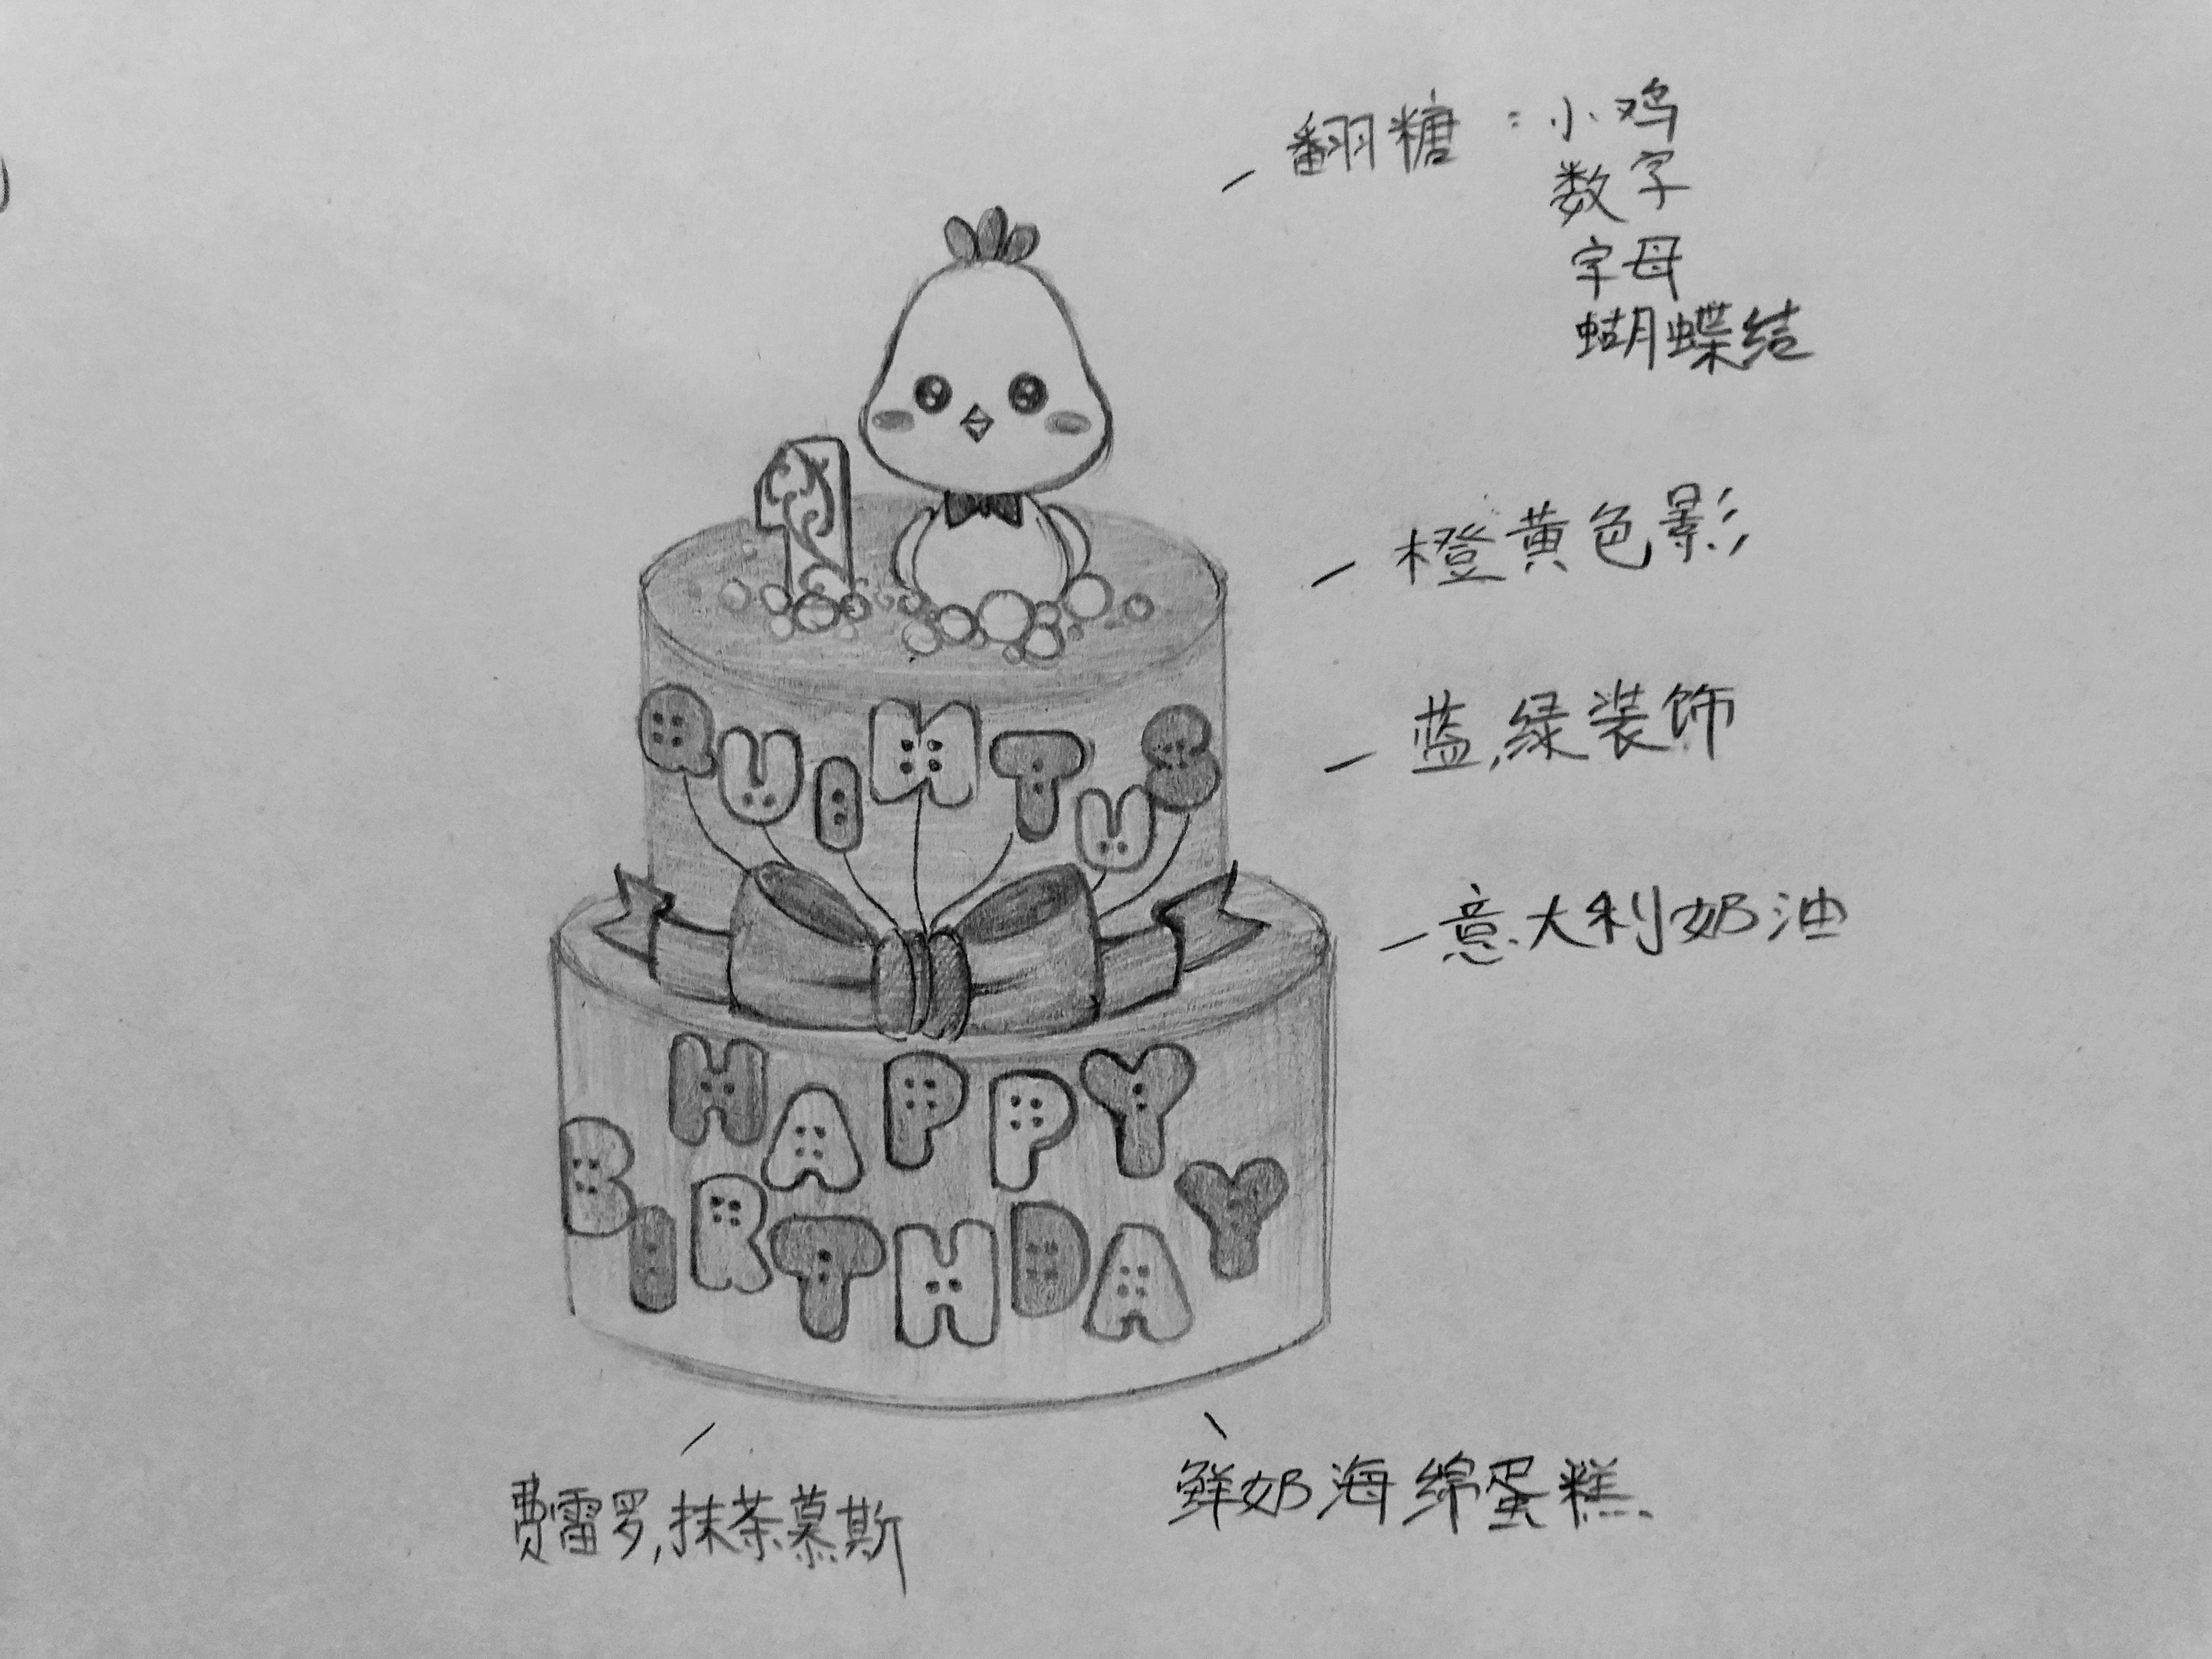 翻糖：小鸡
数字
字母
蝴蝶结
橙黄色影
蓝,绿装饰
意大利奶油
1
QUINTUS
HAPPY
BIRTHDAY
费雷罗,抹茶慕斯
鲜奶海绵蛋糕